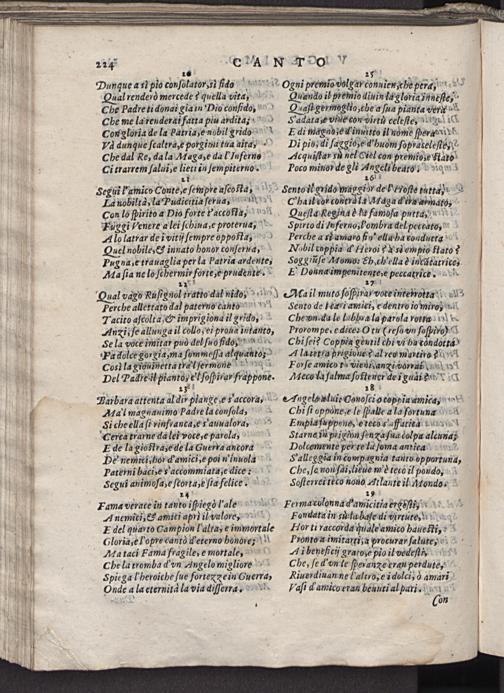 224 CANTO
20
Dunque a sì pio consolator, sì fido
Qual renderò mercede? quella vita,
Che Padre ti donai già in Dio confido,
Che me la renderai fatta più ardita;
Con gloria de la Patria, e nobil grido
Và dunque scaltra, e porgini tua aita,
Che dal Re, da la Maga, e da l'Inferno
Ci trarrem salui, e lieti in sempiterno.
21
Seguì l'amico Conte, e sempre ascosta,
La nobiltà, la Pudicitia serua,
Con lo spirito a Dio forte t'accosta,
Fuggi Venere a lei schiua, e proterua,
A lo latrar de i vitij sempre opposta,
Quel nobile, & innato honor conserua,
Pugna, e trauaglia per la Patria ardente,
Ma sia ne lo schermir forte, e prudente.
22
Qual vago Rusignol tratto dal nido,
Perche allettato dal paterno canto
Tacito ascolta, & imprigiona il grido,
Anzi, se allunga il collo, ei proua intanto,
Se la voce imitar può del suo fido,
Fa dolce gorgia, ma sommessa alquanto;
Così la giouinetta tra'l sermone
Del Padre il pianto, e'l sospirar frappone.
23
Barbara attenta al dir piange, e s'accora,
Ma'l magnanimo Padre la consola,
Si che ella si rinfranca, e s'aualora,
Cerca trarne da lei voce, e parola,
E de la giostra, e de la Guerra ancora
De' nemici, hor d'amici, e poi n'inuola
Paterni baci, e s'accommiata, e dice:
Segui animosa, e scorta, e sia felice.
24
Fama verace in tanto ispiegò l'ale
A nemici, & amici aprì il valore,
E del quarto Campion l'alta, e immortale
Gloria, e l'opre cantò d'eterno honore;
Ma taci Fama fragile, e mortale,
Che la tromba d'vn Angelo migliore
Spiega l'heroiche sue fortezze in Guerra,
Onde a la eternità la via disserra.
25
Ogni premio volgar conuien, che pera,
Quando il premio diuin la gloria inneste,
Quasi germoglio, che a sua pianta vera
S'adata, e viue con virtù celeste,
E di magno, e d'inuitto il nome spera
Di pio, di saggio, e d'huom sopraceleste,
Acquistar sù nel Ciel con premio, e stato
Poco minor de gli Angeli beato.
26
Sento il grido maggior de l'Hoste tutta,
C'ha il cor contra la Maga d'ira armato,
Questa Regina è la famosa putta,
Spirto di Inferno, l'ombra del peccato,
Perche a sì amaro fin ella ha condutta
Nobil coppia d'Heroi? à sì empio stato?
Soggiunse Momo: Eh, ch'ella è incātatrice,
E Donna impenitente, e peccatrice.
27
Ma il muto sospirar voce interrotta
Sento de i cari amici, e dentro io miro,
Che vn da le labbra la parola rotta
Prorompe, e dice: O tu (reso vn sospiro)
Chi sei? Coppia gentil chi vi ha condotta
A la tetra prigione? al reo martiro?
Forse amico tu vieni, anzi vorrai
Meco la salma sostener de i guai?
28
Angelo a lui: Conosci o coppia amica,
Chi si oppone, e le spalle a la fortuna
Empia suppone, e teco s'affatica
Starne in prigion senza sua colpa alcuna;
Dolcemente per te la soma antica
S'alleggia in compagnia tanto opportuna,
Che, se non sai, lieue m'è teco il pondo,
Sosterrei teco nono Atlante il Mondo.
29
Ferma colonna d'amicitia ergesti,
Fondata in sù la base di virtute,
Hor ti raccorda quale amico hauesti,
Pronto a imitarti, a procurar salute,
A i beneficij grato, e pio il vedesti;
Che, se d'vn le speranze eran perdute,
Riuerdiuanne l'altro, e i dolci, ò amari
Vasi d'amico eran beuuti al pari.
Con